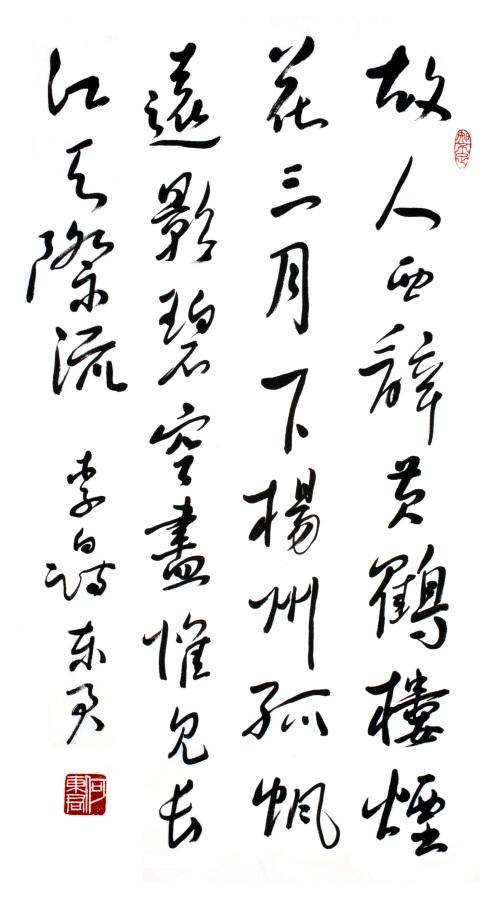 故人西辭黄鶴樓煙
花三月下楊州孤帆
遠影碧空盡惟見長
江天際流 李白詩 東